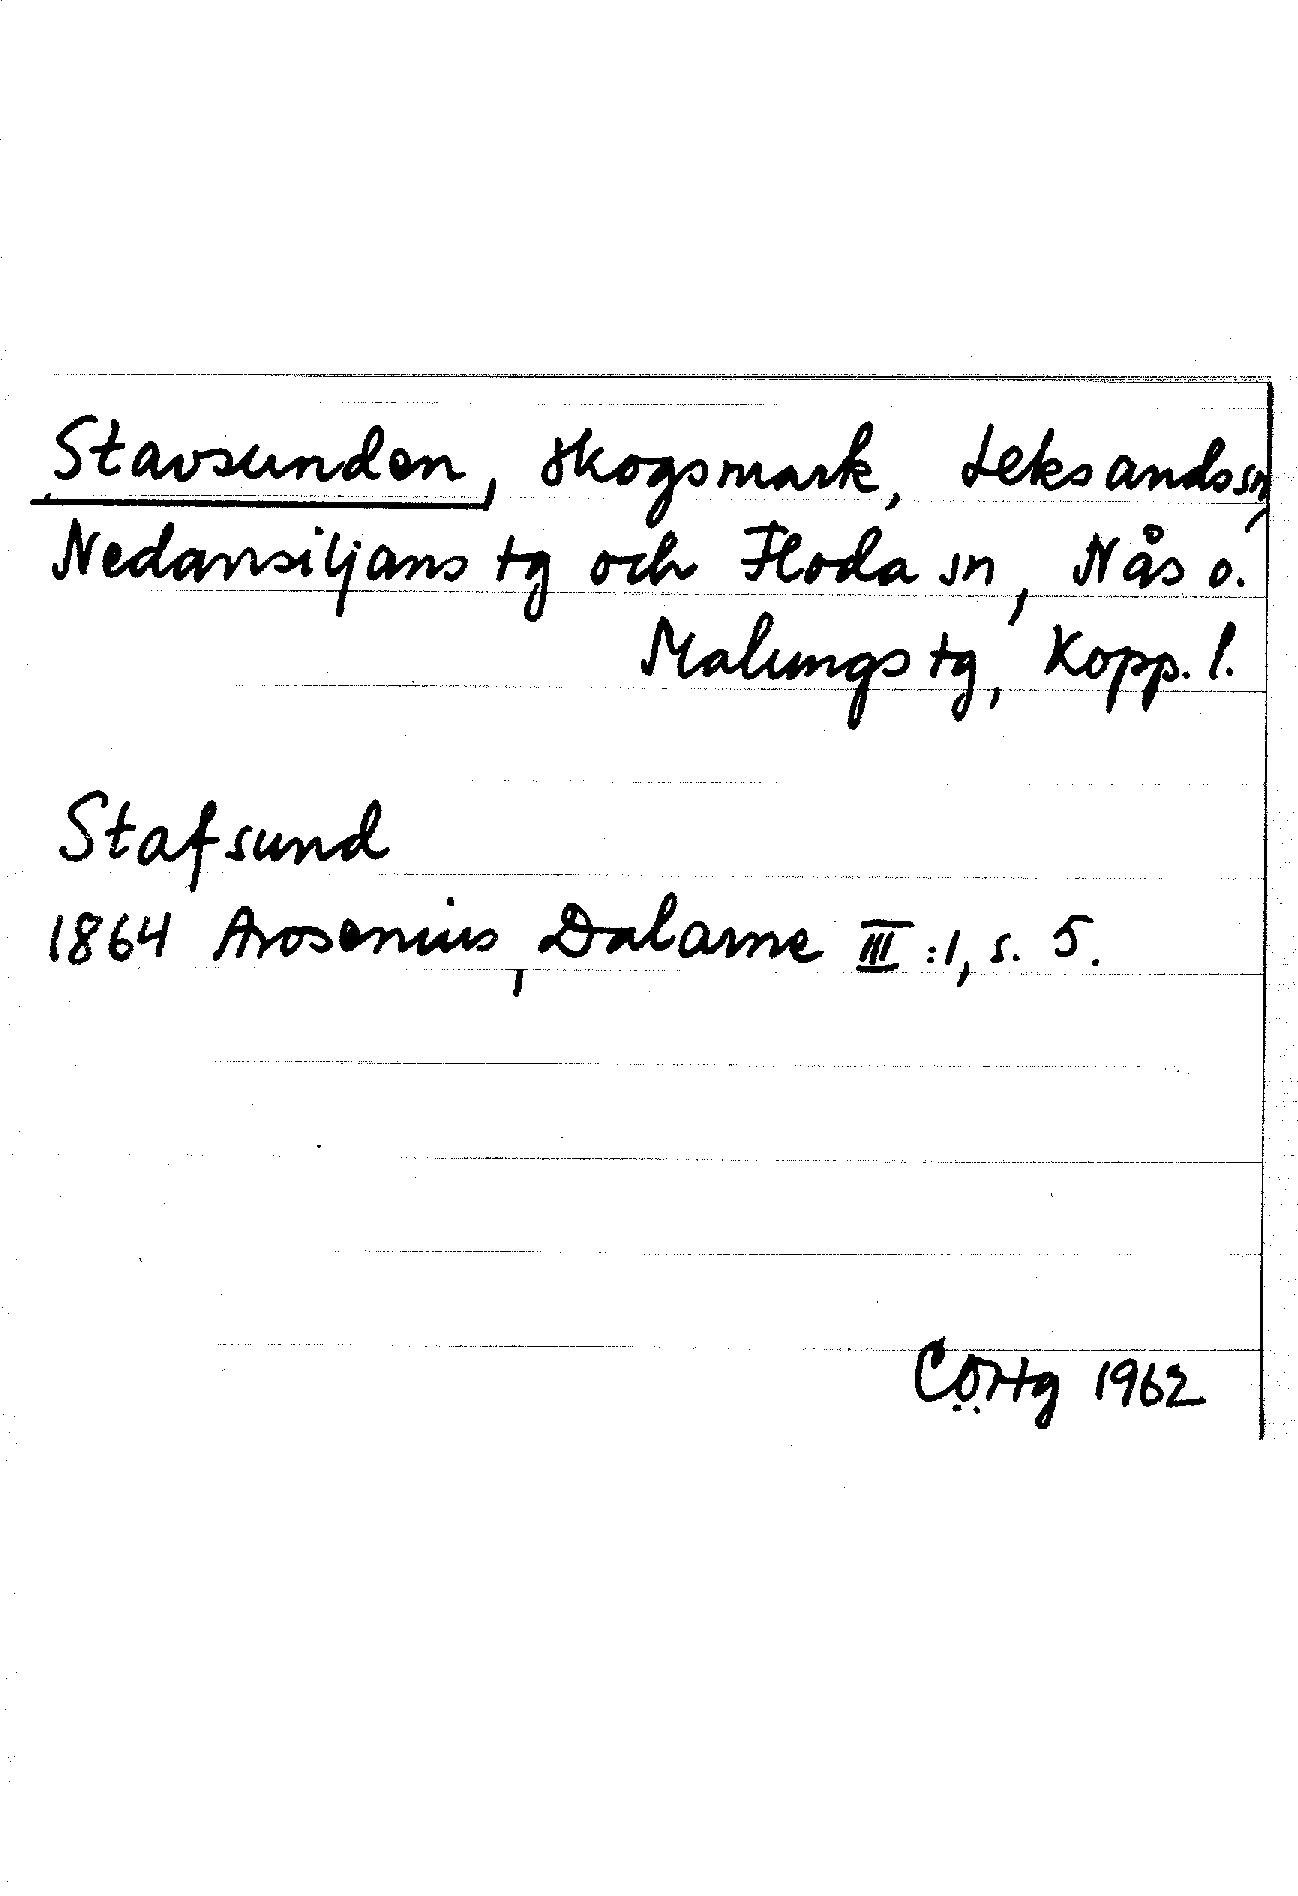 Stavsunden, skogsmark, Leksands sn,
Nedansiljans tg och Floda sn, Nås o.
Malungs tg, Kopp. l.
Stafsund
1864 Arosenius, Dalarne III:1, s. 5.
CÖHg 1962